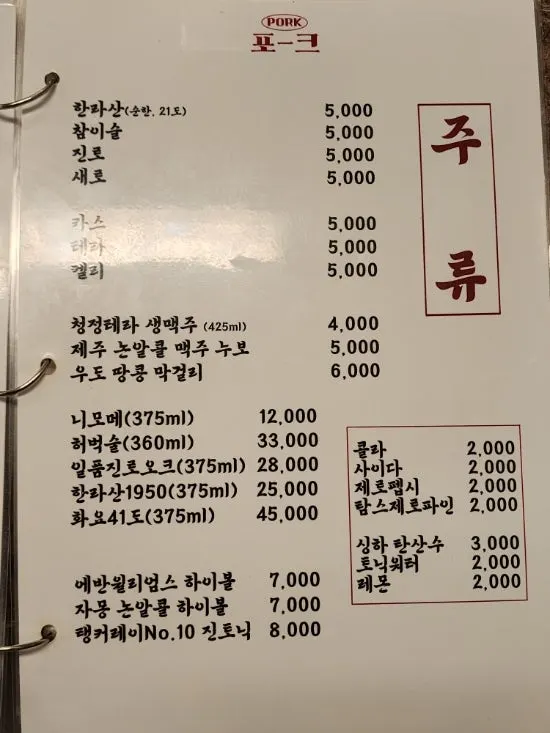 PORK
포-크
주류
한라산(순한, 21도) 5,000
참이슬 5,000
진로 5,000
새로 5,000
카스 5,000
테라 5,000
켈리 5,000
청정테라 생맥주 (425ml) 4,000
제주 논알콜 맥주 누보 5,000
우도 땅콩 막걸리 6,000
니모메(375ml) 12,000
허벅술(360ml) 33,000
일품진로오크(375ml) 28,000
한라산1950(375ml) 25,000
화요41도(375ml) 45,000
에반윌리엄스 하이볼 7,000
자몽 논알콜 하이볼 7,000
탱커레이No.10 진토닉 8,000
콜라 2,000
사이다 2,000
제로펩시 2,000
탐스제로파인 2,000
싱하 탄산수 3,000
토닉워터 2,000
레몬 2,000